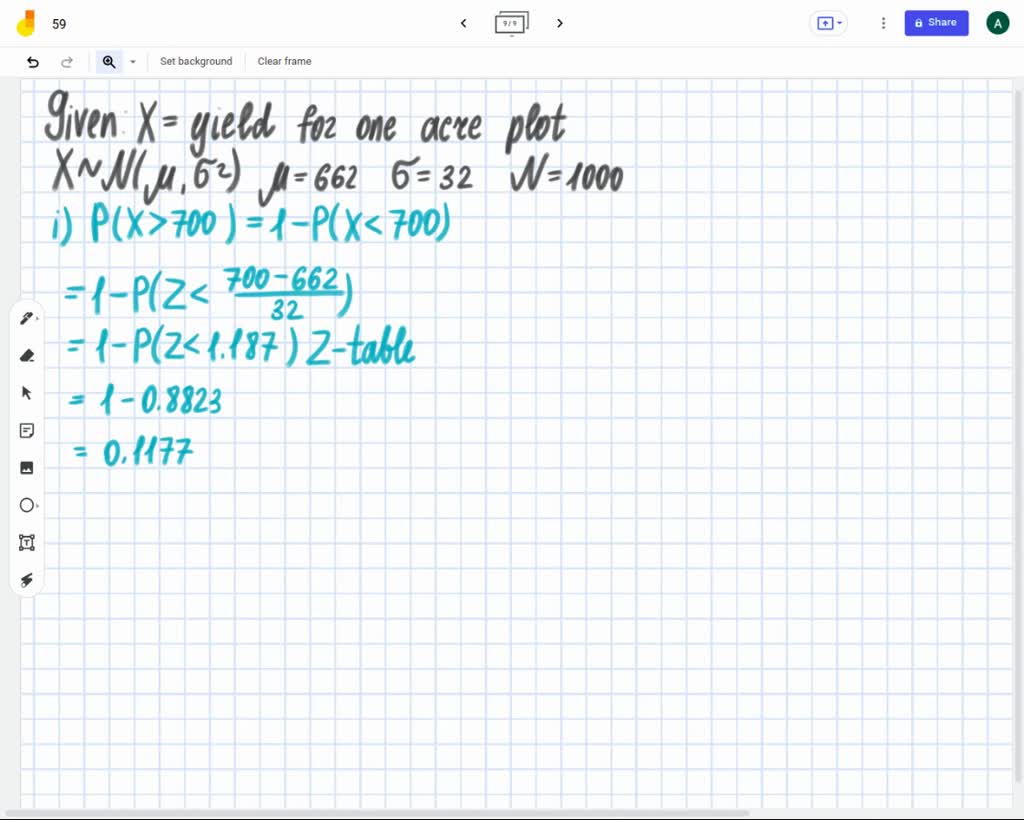 59
9/9
Share
A
Set background
Clear frame
Given: X = yield for one acre plot
X~N(μ, σ²) μ = 662 σ = 32 N = 1000
i) P(X > 700) = 1 - P(X < 700)
= 1 - P(Z < \frac{700 - 662}{32})
= 1 - P(Z < 1.187) Z-table
= 1 - 0.8823
= 0.1177